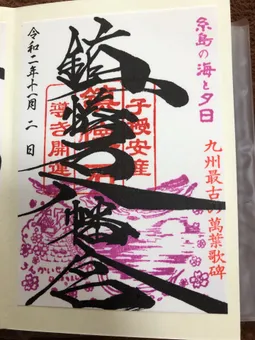 糸島の海と夕日
九州最古の萬葉歌碑
子授安産
導き開運
鎮懐石八幡宮
令和二年十一月二日